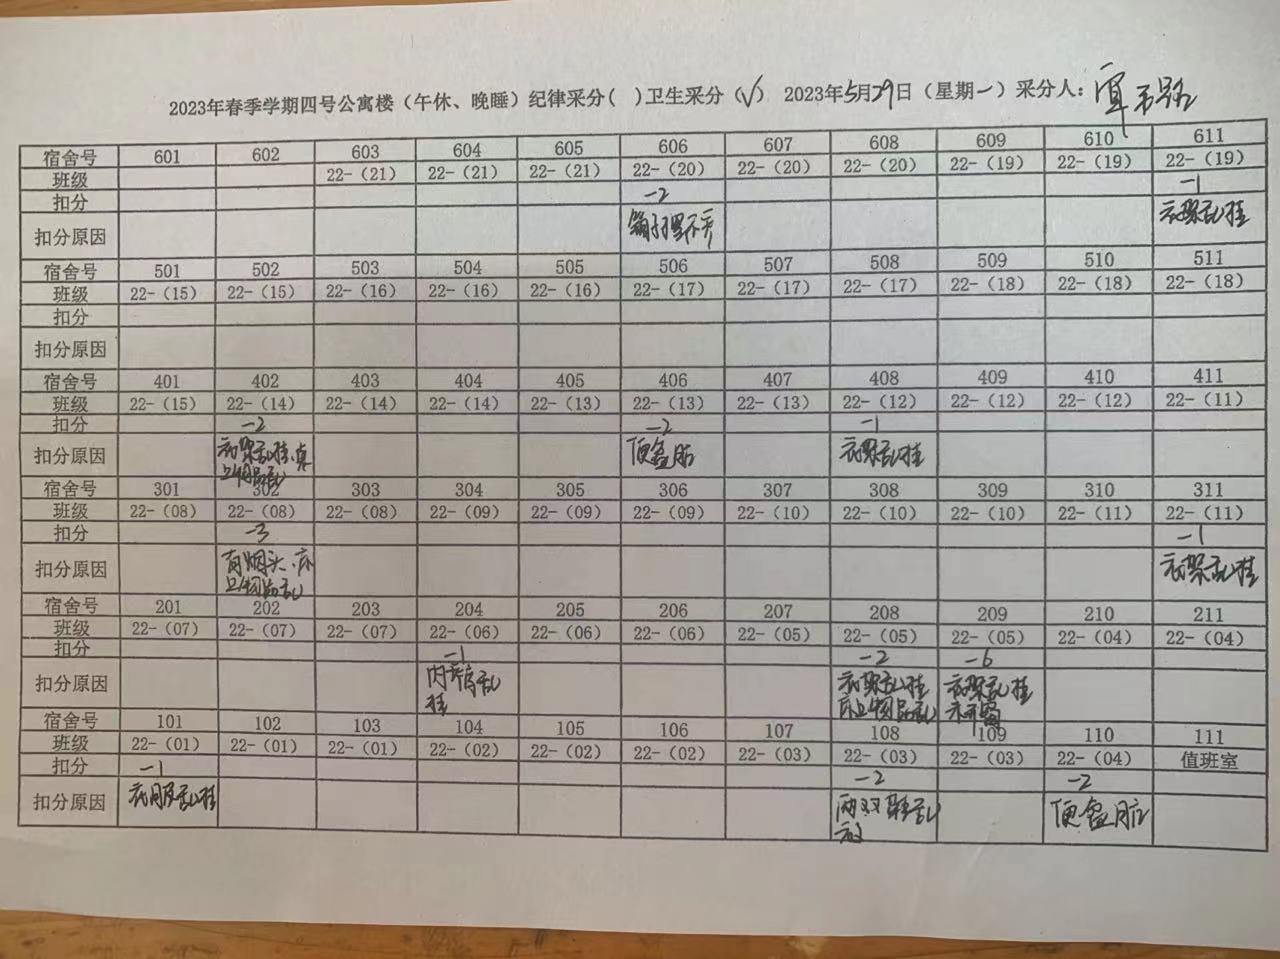 2023年春季学期四号公寓楼（午休、晚睡）纪律采分( )卫生采分（√） 2023年5月29日（星期一）采分人：
宿舍号 601 602 603 604 605 606 607 608 609 610 611
班级 22-（21） 22-（21） 22-（21） 22-（20） 22-（20） 22-（20） 22-（19） 22-（19） 22-（19）
扣分 -2 -1
扣分原因 衣架乱挂
宿舍号 501 502 503 504 505 506 507 508 509 510 511
班级 22-（15） 22-（15） 22-（16） 22-（16） 22-（16） 22-（17） 22-（17） 22-（17） 22-（18） 22-（18） 22-（18）
扣分
扣分原因
宿舍号 401 402 403 404 405 406 407 408 409 410 411
班级 22-（15） 22-（14） 22-（14） 22-（14） 22-（13） 22-（13） 22-（13） 22-（12） 22-（12） 22-（12） 22-（11）
扣分 -2 -2 -1
扣分原因 衣架乱挂、桌上物品乱 便盆脏 衣架乱挂
宿舍号 301 302 303 304 305 306 307 308 309 310 311
班级 22-（08） 22-（08） 22-（08） 22-（09） 22-（09） 22-（09） 22-（10） 22-（10） 22-（10） 22-（11） 22-（11）
扣分 -3 -1
扣分原因 有烟头、床上物品乱 衣架乱挂
宿舍号 201 202 203 204 205 206 207 208 209 210 211
班级 22-（07） 22-（07） 22-（07） 22-（06） 22-（06） 22-（06） 22-（05） 22-（05） 22-（05） 22-（04） 22-（04）
扣分 -1 -2 -6
扣分原因 乱挂 衣架乱挂 床上物品乱 衣架乱挂
宿舍号 101 102 103 104 105 106 107 108 109 110 111
班级 22-（01） 22-（01） 22-（01） 22-（02） 22-（02） 22-（02） 22-（03） 22-（03） 22-（03） 22-（04） 值班室
扣分 -1 -2 -2
扣分原因 衣服乱挂 两双鞋乱放 便盆脏